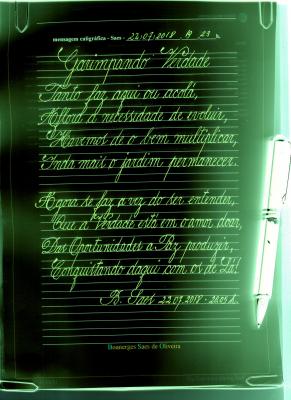 mensagem caligráfica - Saes - 22.07.2018 - A 23
Garimpando Verdade
Tanto faz aqui ou acolá,
Aflora a necessidade de evoluir,
Haveremos de o bem multiplicar,
Inda mais o jardim permanecer.
Agora se faz a vez do ser entender,
Que a Verdade está em o amor doar,
Das Oportunidades a Paz produzir,
Conquistando daqui com os de Lá!
B. Saes 22.07.2018 -
Boanerges Saes de Oliveira